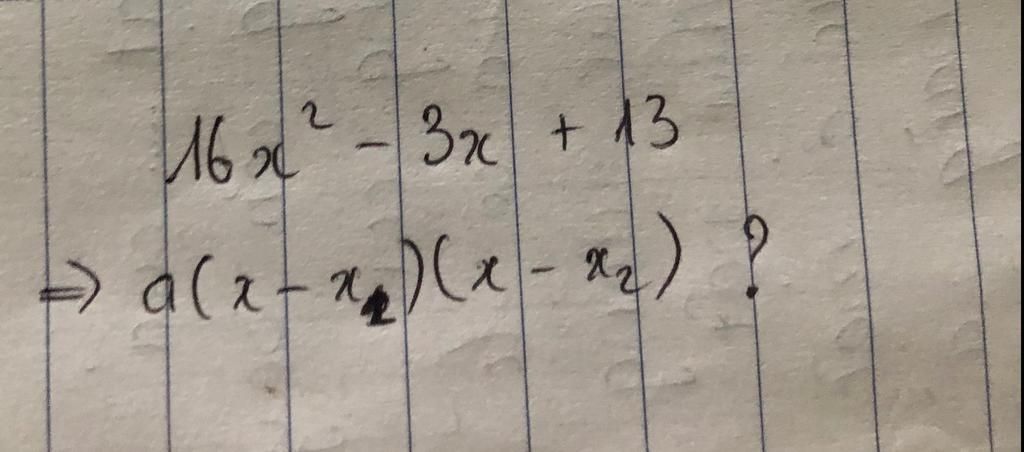 16x² - 3x + 13
⇒ a(x - x₁)(x - x₂) ?